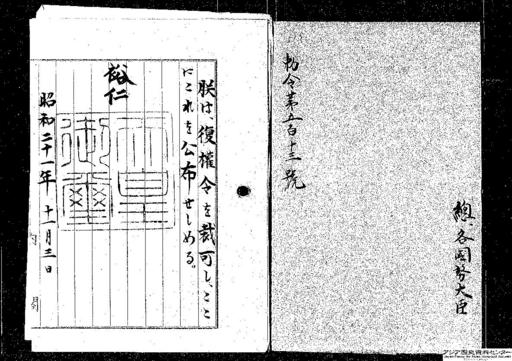 勅令第五百十三號
總、各國務大臣
朕は、復權令を裁可し、ここ
にこれを公布せしめる。
裕仁
天皇御璽
昭和二十一年十一月三日
アジア歴史資料センター